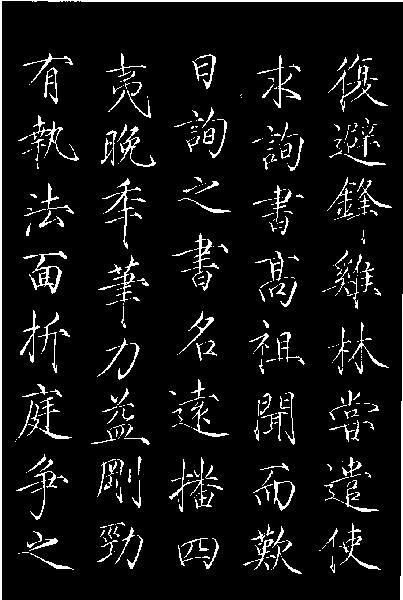 復避鋒雞林嘗遣使
求詢書髙祖聞而歎
曰詢之書名遠播四
夷晚秊筆力益剛勁
有執法面折庭爭之